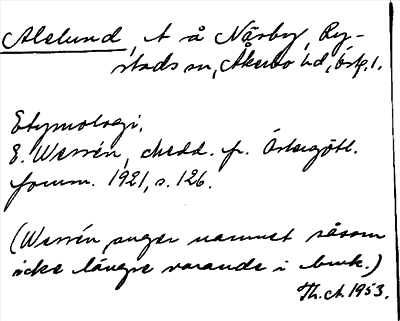 Alelund, t å Närby, Ry-
stads sn, Åkerbo hd, Östg. l.
Etymologi.
E. Wessén, Medd. fr. Östergötl.
fornm. 1921, s. 126.
(Wessén anger namnet såsom
icke längre varande i bruk.)
Th. A 1953.